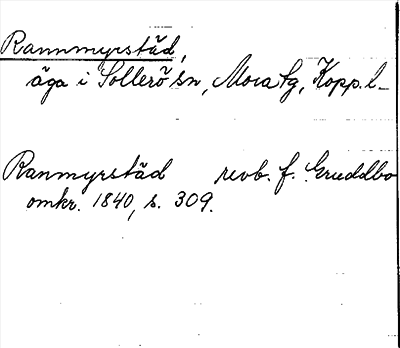 Rannmyrstäd,
äga i Sollerö sn, Mora tg, Kopp. l.
Ranmyrstäd revb. f. Gruddbo
omkr. 1840, s. 309.